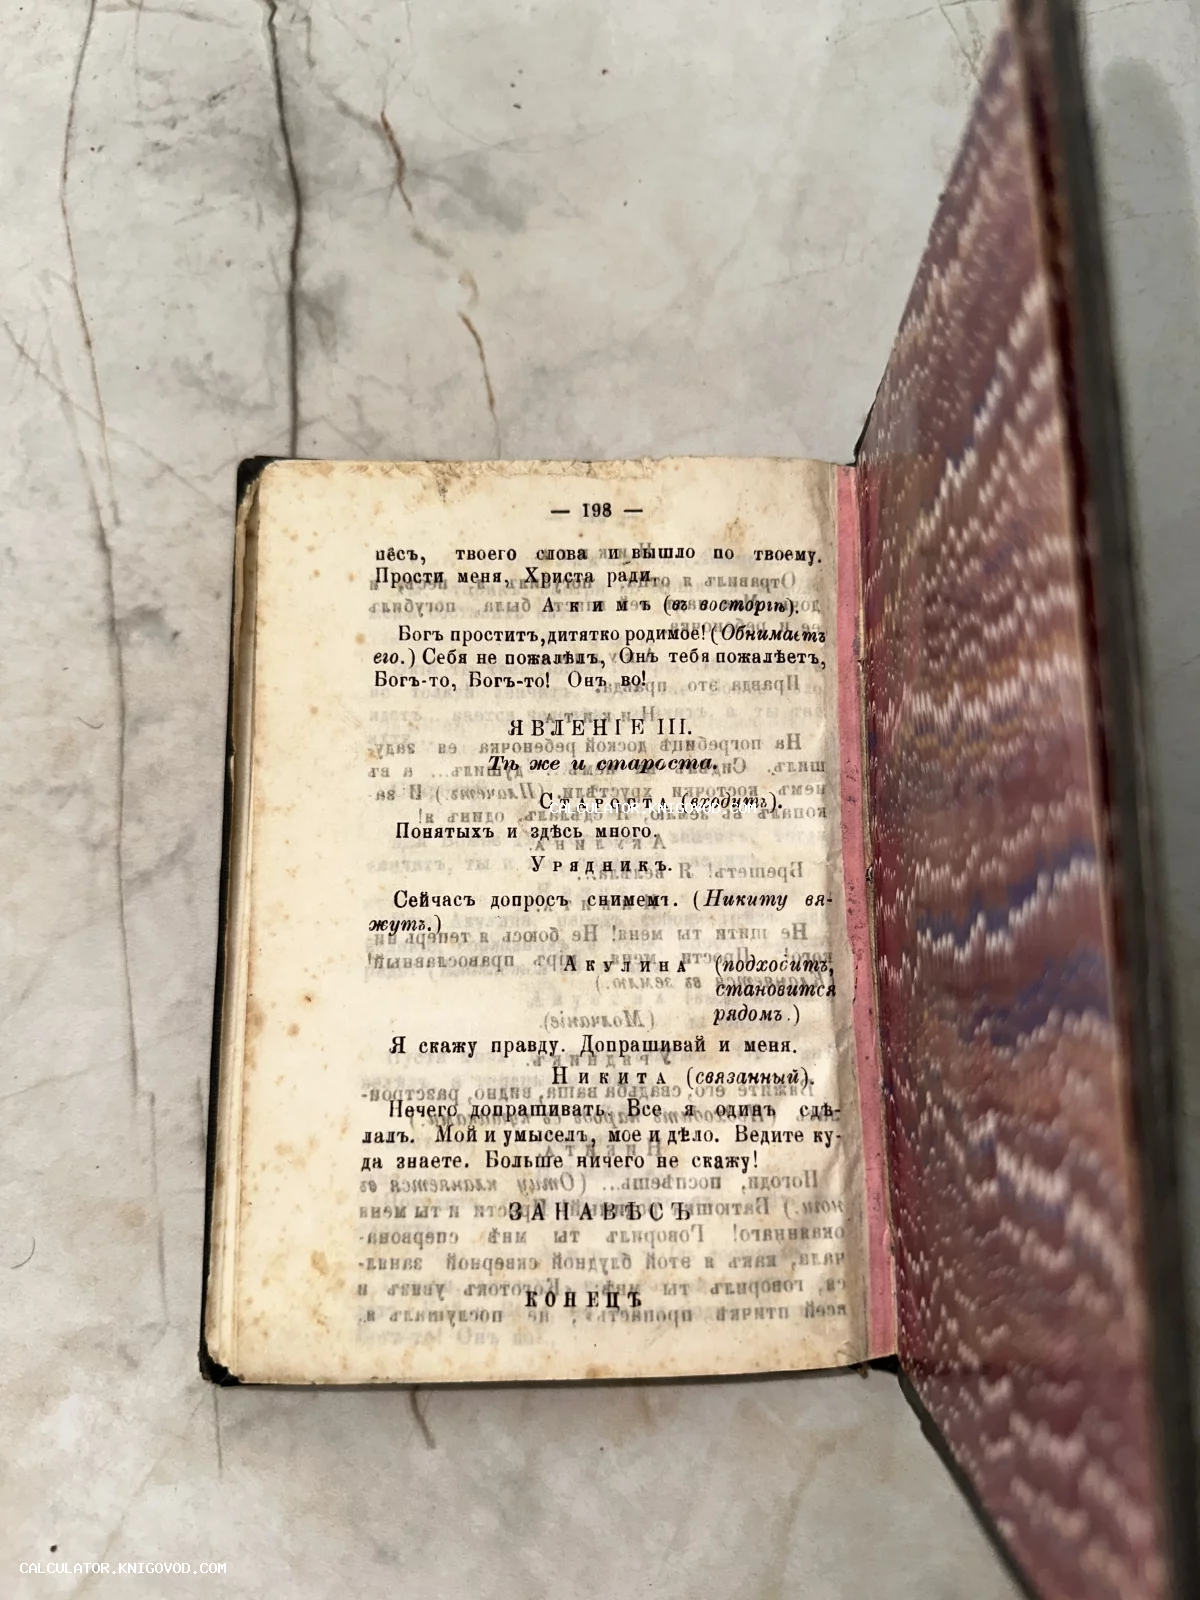 — 198 —
пёсъ, твоего слова и вышло по твоему.
Прости меня, Христа ради.
Акимъ (въ восторгѣ).
Богъ проститъ, дитятко родимое! (Обнимаетъ
его.) Себя не пожалѣлъ, Онъ тебя пожалѣетъ,
Богъ-то, Богъ-то! Онъ во!
ЯВЛЕНІЕ III.
Тѣ же и староста.
Староста (входитъ).
CALCULATOR.KNIGOVOD.COM
Понятыхъ и здѣсь много.
Урядникъ.
Сейчасъ допросъ снимемъ. (Никиту вя-
жутъ.)
Акулина (подходитъ,
становится
рядомъ.)
Я скажу правду. Допрашивай и меня.
Никита (связанный).
Нечего допрашивать. Все я одинъ сдѣ-
лалъ. Мой и умыселъ, мое и дѣло. Ведите ку-
да знаете. Больше ничего не скажу!
ЗАНАВѢСЪ
КОНЕЦЪ
CALCULATOR.KNIGOVOD.COM